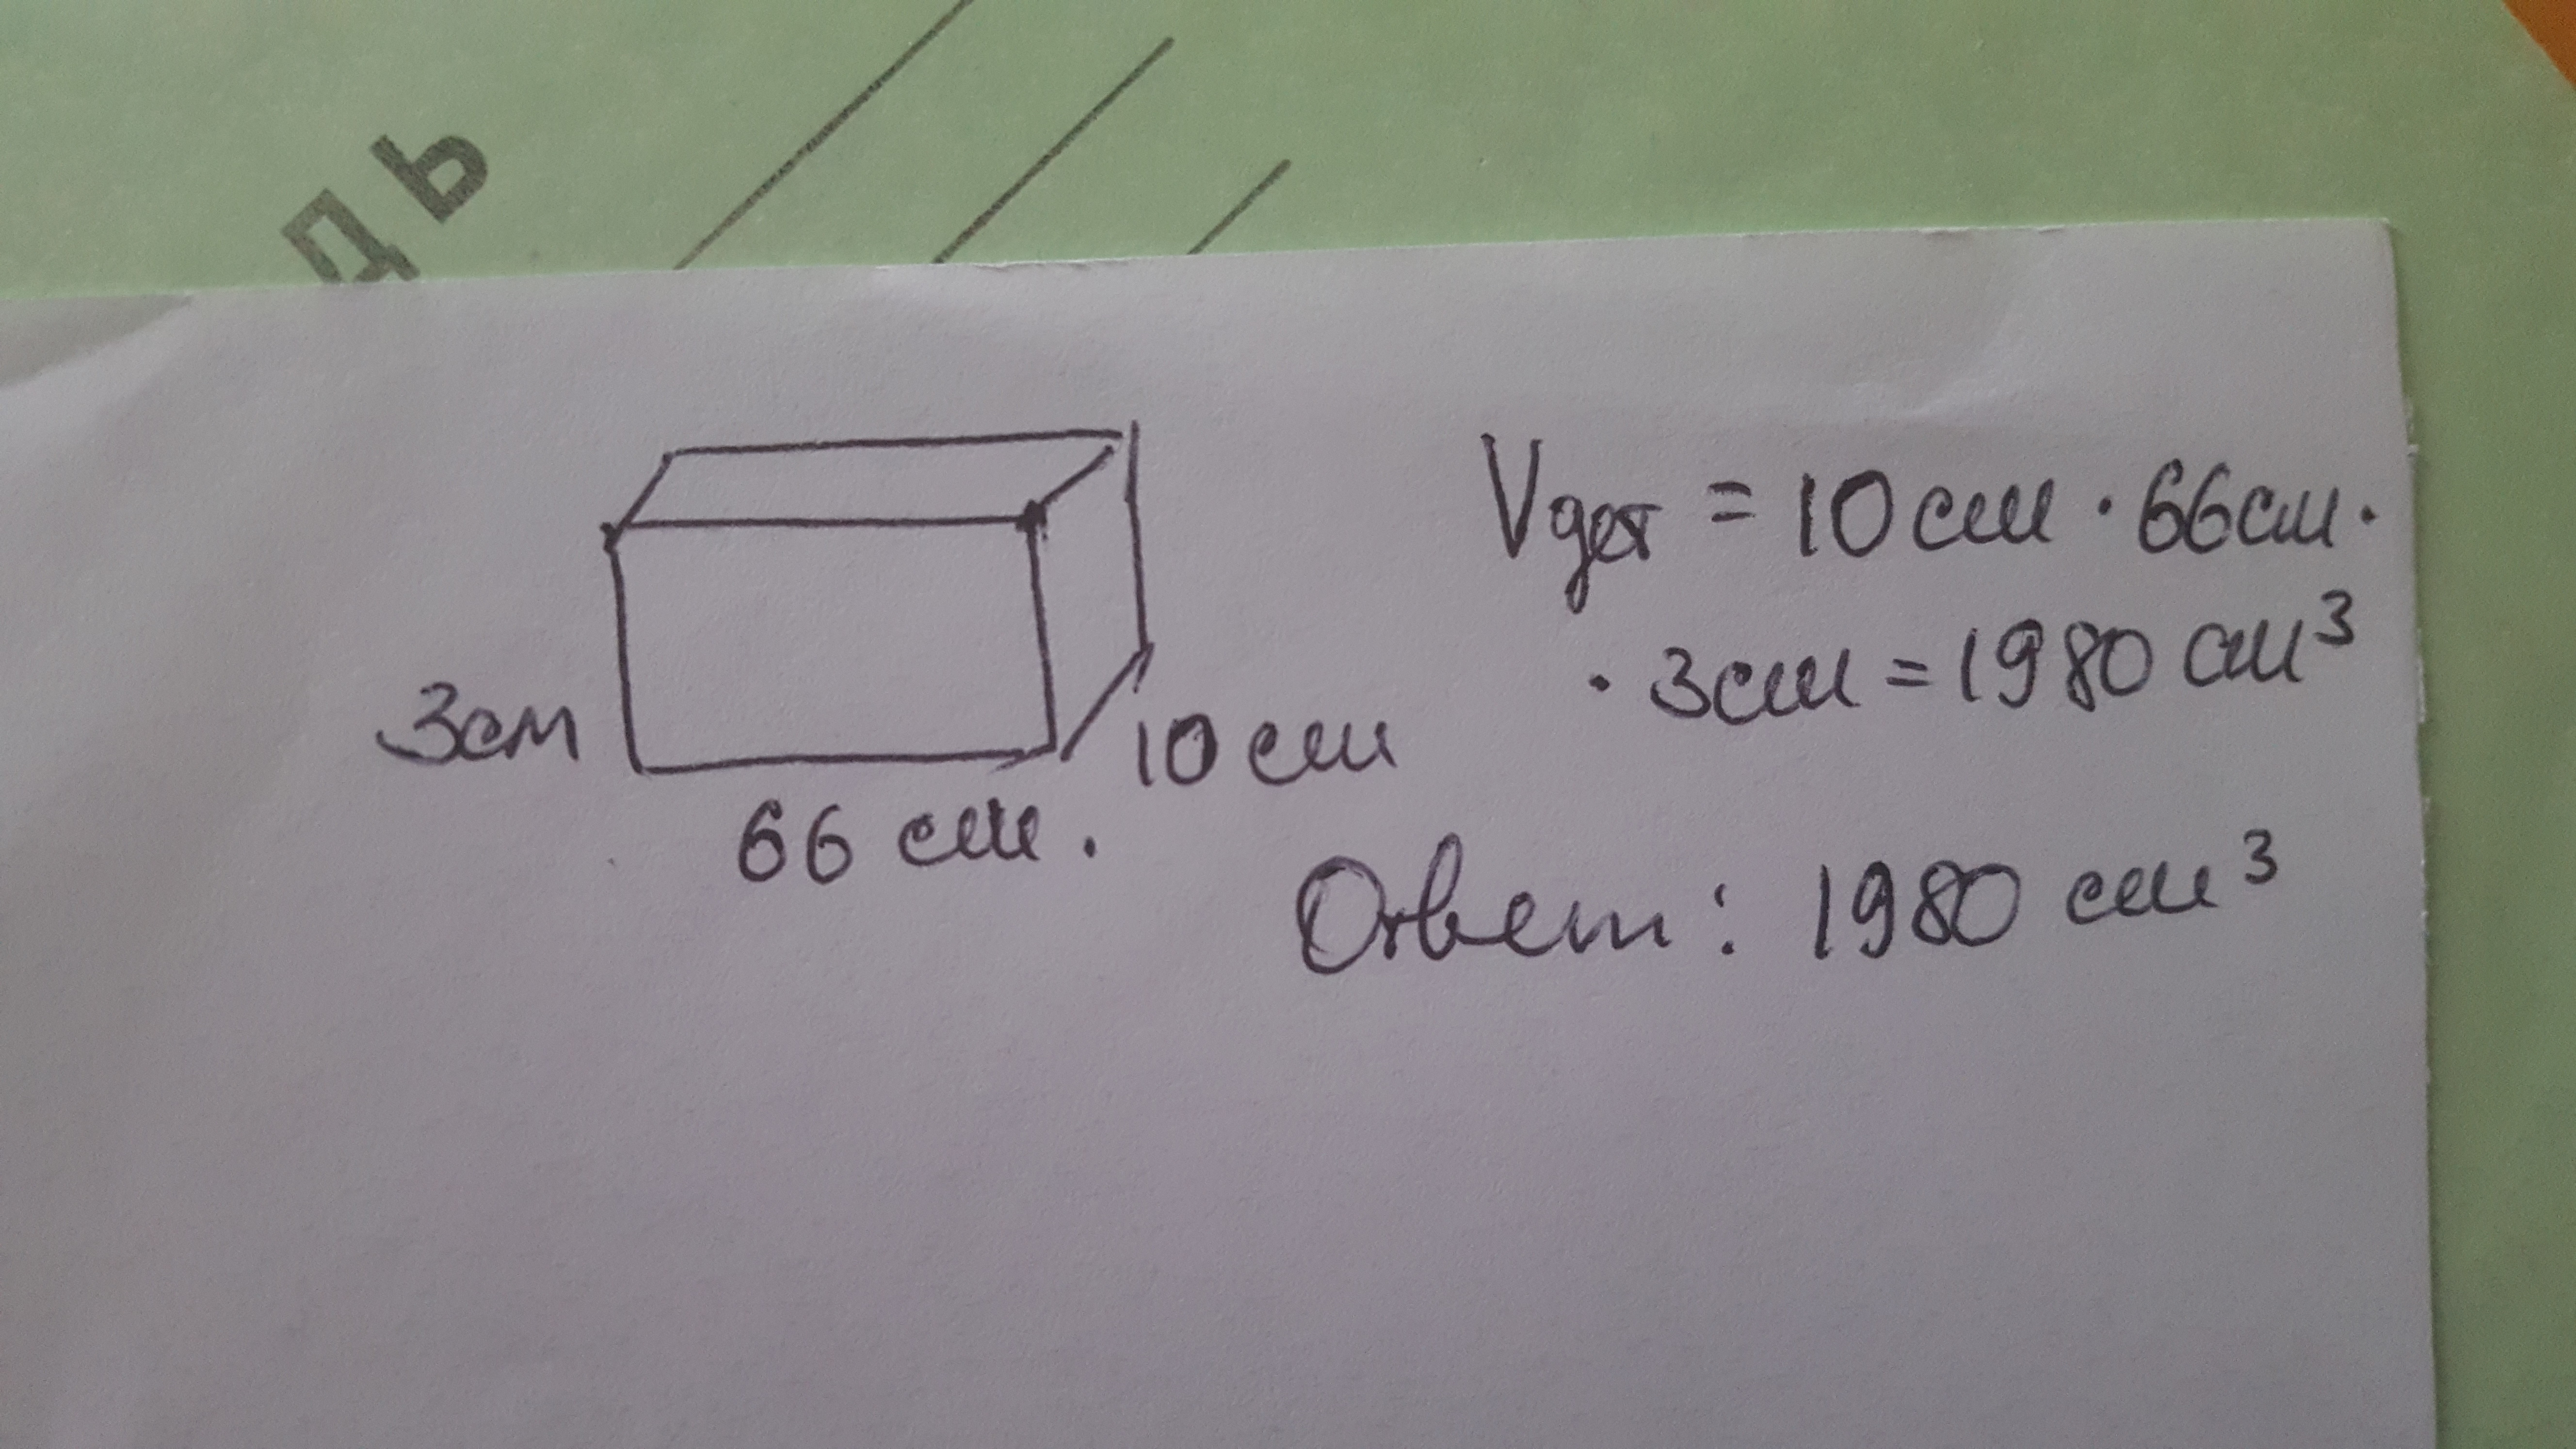 ДЬ
3см
66 см.
10 см
V = 10 см · 66 см ·
· 3 см = 1980 см³
Ответ: 1980 см³